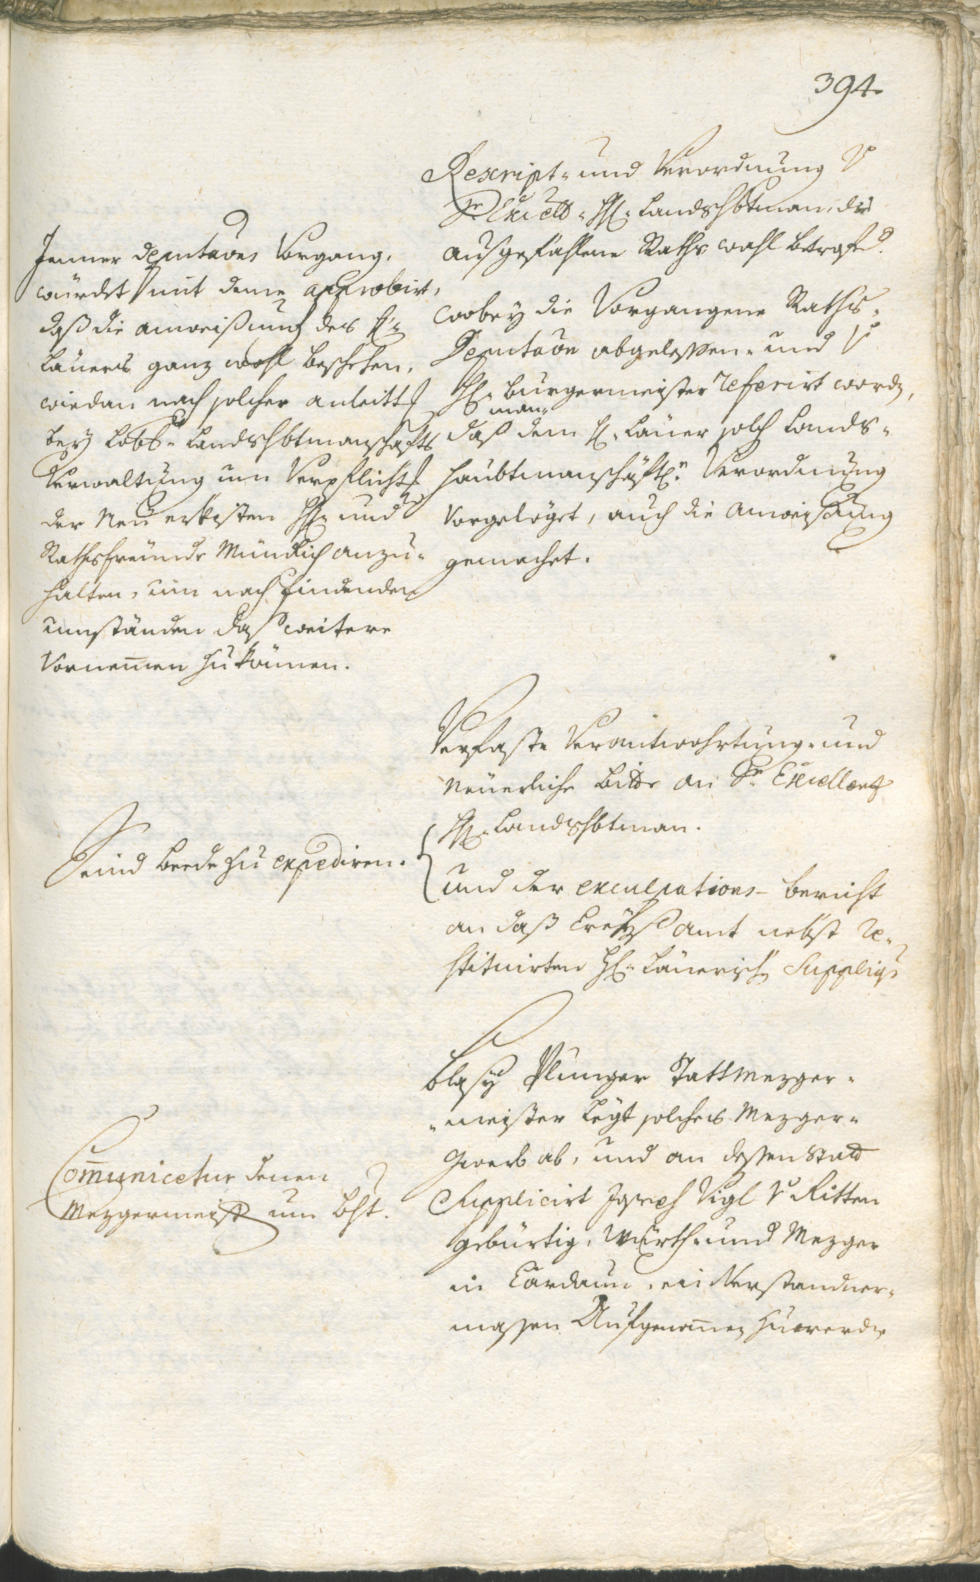 394.
Rescript- und Verordnung V
Sr Excell: H: Landshbtman, die
ausgefahlene Raths wahl betrefd.
wobey die Vorgangene Raths-
Deputaōn abgelassen- und V
H: Burgermeister referirt wordē,
daß man dem H: Lauer solch Lands-
haubtmanschäftl: Verordnung
Vorgelöget, auch die Anweisung
gemachet.
Jenner deputaōns Vorgang,
würdet mit deme approbirt,
daß die anweisung des H:
Lauers ganz wohl beschehen,
wiedan nach solcher anleitt
bey Löbl: Landshbtmanschafts
Verwaltung um Verpflicht
der Neu erkisten H: und
Rathsfreunde Mündlich anzu-
halten, um nach findenden
umständen daß weitere
Vornemen zu könen.
Verfaste Verantwohrtung- und
Neuerliche bitte an Sr Excellenz
H: Landshbtman.
und der exculpations- bericht
an daß Creyß amt nebst re-
stituirten H: Lauerisch Suppliqs
Seind beede zu expediren.
Blasy Plunger Stattmezger-
-meister legt solches Mezger-
Gwerb ab, und an dessen Statt
Supplicirt Joseph Vigl V Ritten
gebürtig, Würth- und Mezger
in Cardaun, ein Verstandner-
massen Aufgenomen zu werdē
Comunicetur denen
Mezgermeist um bht.